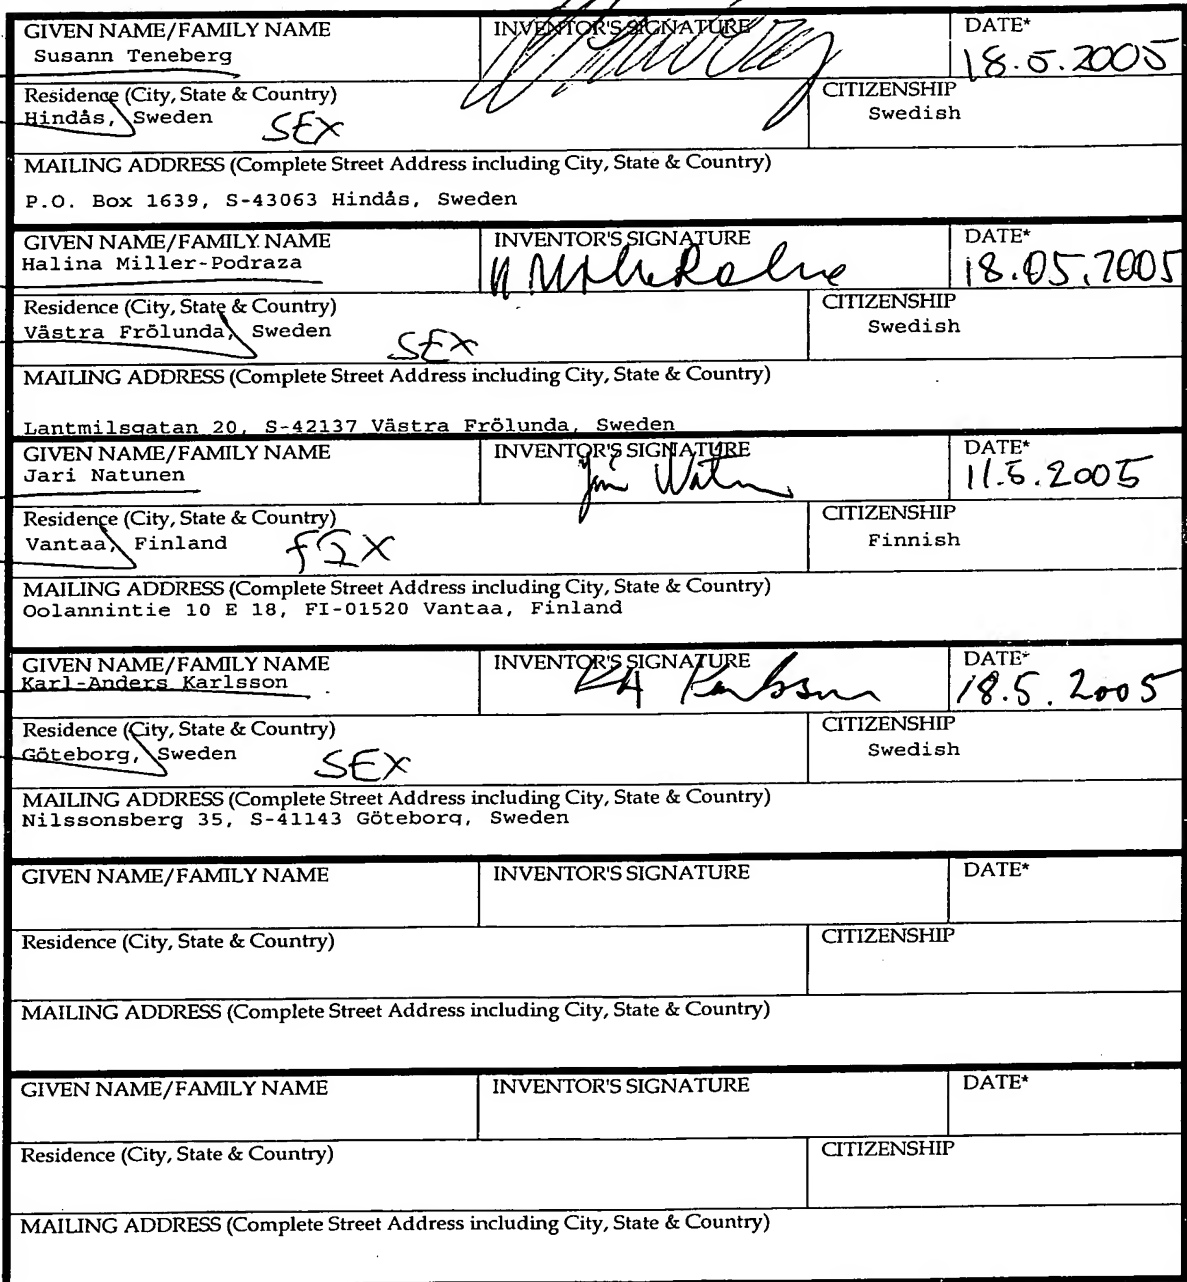 GIVEN NAME/FAMILY NAME INVENTOR'S SIGNATURE DATE*
Susann Teneberg 18.5.2005
Residence (City, State & Country) CITIZENSHIP
Hindås, Sweden SEX Swedish
MAILING ADDRESS (Complete Street Address including City, State & Country)
P.O. Box 1639, S-43063 Hindås, Sweden
GIVEN NAME/FAMILY NAME INVENTOR'S SIGNATURE DATE*
Halina Miller-Podraza 18.05.2005
Residence (City, State & Country) CITIZENSHIP
Västra Frölunda, Sweden SEX Swedish
MAILING ADDRESS (Complete Street Address including City, State & Country)
Lantmilsgatan 20, S-42137 Västra Frölunda, Sweden
GIVEN NAME/FAMILY NAME INVENTOR'S SIGNATURE DATE*
Jari Natunen 11.5.2005
Residence (City, State & Country) CITIZENSHIP
Vantaa, Finland FIX Finnish
MAILING ADDRESS (Complete Street Address including City, State & Country)
Oolannintie 10 E 18, FI-01520 Vantaa, Finland
GIVEN NAME/FAMILY NAME INVENTOR'S SIGNATURE DATE*
Karl-Anders Karlsson KA Karlsson 18.5.2005
Residence (City, State & Country) CITIZENSHIP
Göteborg, Sweden SEX Swedish
MAILING ADDRESS (Complete Street Address including City, State & Country)
Nilssonsberg 35, S-41143 Göteborg, Sweden
GIVEN NAME/FAMILY NAME INVENTOR'S SIGNATURE DATE*
Residence (City, State & Country) CITIZENSHIP
MAILING ADDRESS (Complete Street Address including City, State & Country)
GIVEN NAME/FAMILY NAME INVENTOR'S SIGNATURE DATE*
Residence (City, State & Country) CITIZENSHIP
MAILING ADDRESS (Complete Street Address including City, State & Country)